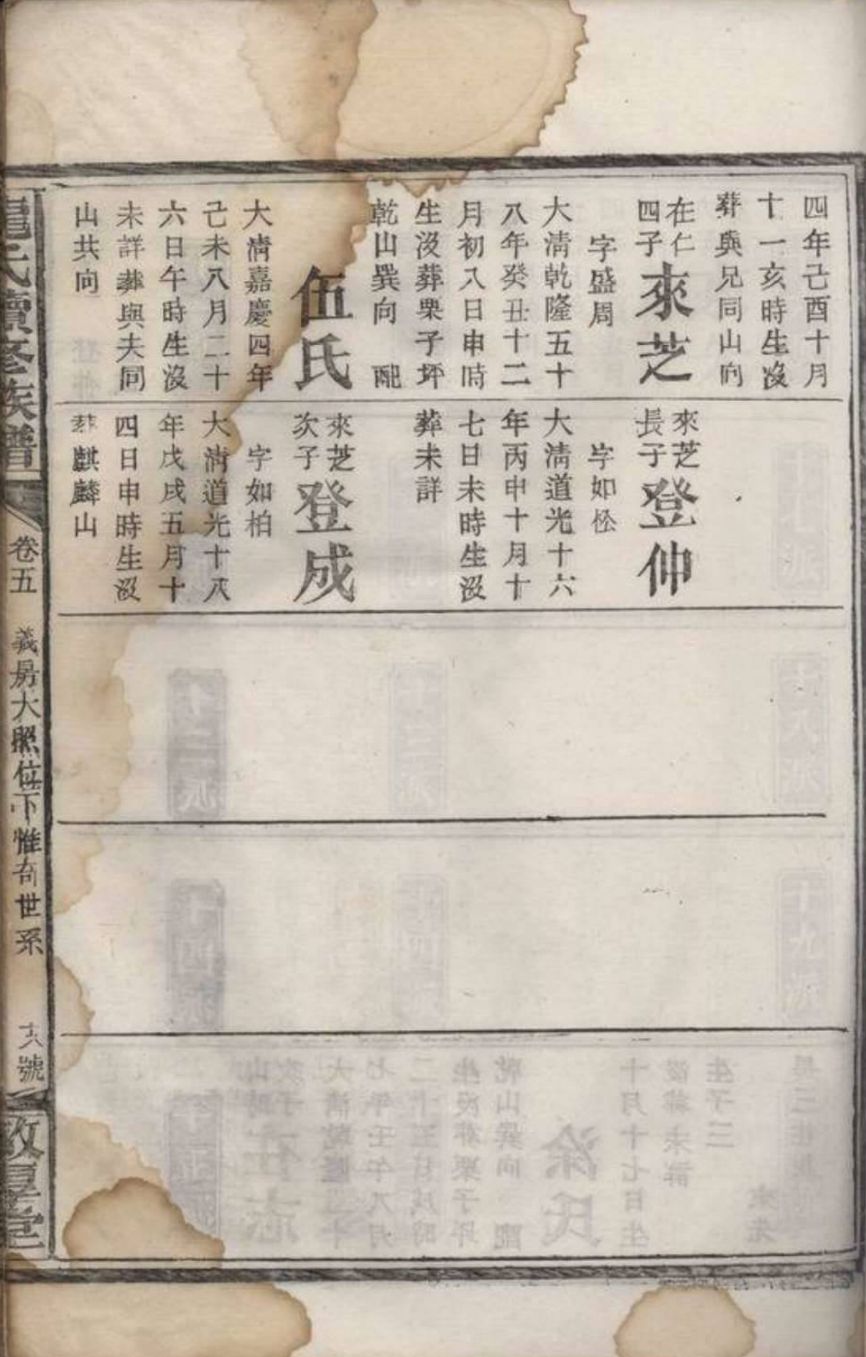 四年己酉十月
十一亥時生沒
葬與兄同山向
在仁
四子
來芝
字盛周
大淸乾隆五十
八年癸丑十二
月初八日申時
生沒葬栗子坪
乾山巽向 配
伍氏
大淸嘉慶四年
己未八月二十
六日午時生沒
未詳葬與夫同
山共向
來芝
長子
登仲
字如松
大淸道光十六
年丙申十月十
七日未時生沒
葬未詳
來芝
次子
登成
字如柏
大淸道光十八
年戊戌五月十
四日申時生沒
葬麒麟山
氏續修族譜
卷五
義房大照位下惟奇世系
號
敦厚堂